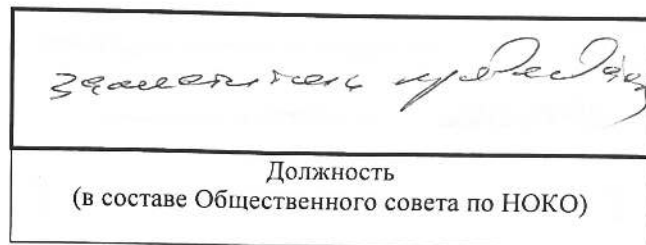 заместитель председат
Должность
(в составе Общественного совета по НОКО)